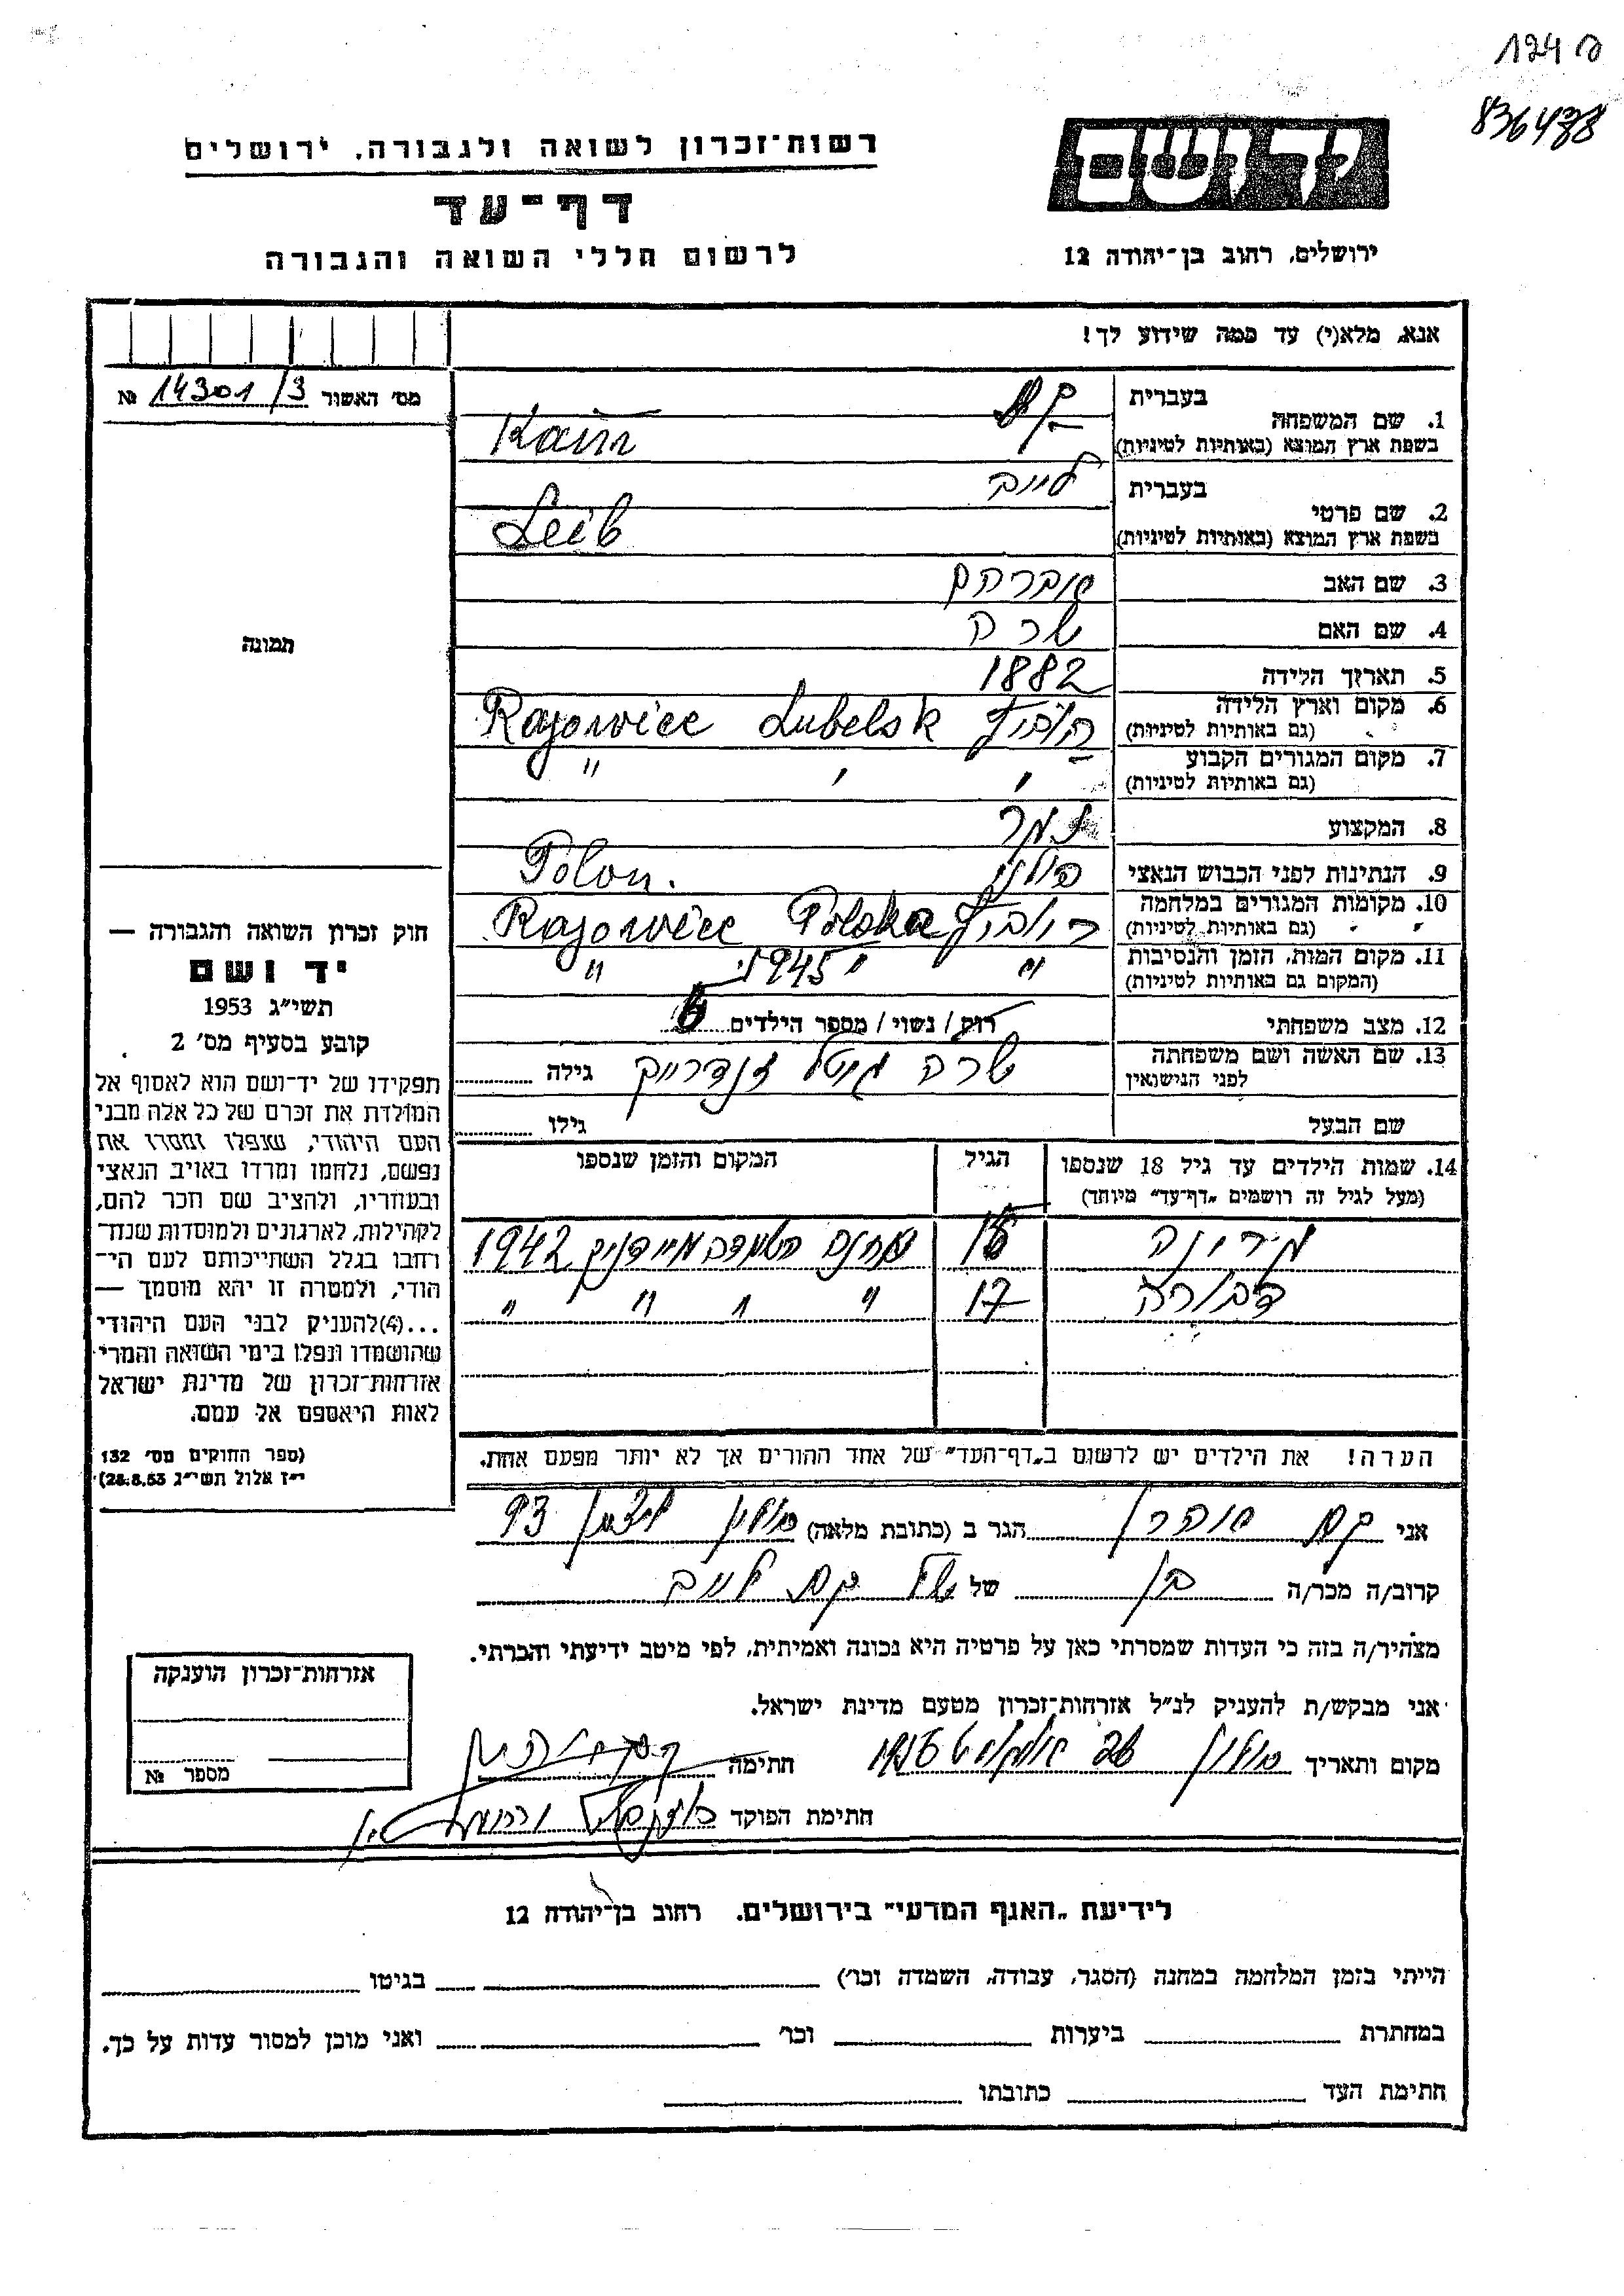 124 ק
836488
רשות־זכרון לשואה ולגבורה, ירושלים
דף־עד
לרשום חללי השואה והגבורה
יד ושם
ירושלים, רחוב בן־יהודה 12
אנא, מלא(י) עד כמה שידוע לך!
מס' האשור 14301/3 №
תמונה
1. שם המשפחה
בעברית
בשפת ארץ המוצא (באותיות לטיניות) Kam
2. שם פרטי
בעברית לייב
בשפת ארץ המוצא (באותיות לטיניות) Leib
3. שם האב אברהם
4. שם האם שרה
5. תאריך הלידה 1882
6. מקום וארץ הלידה Rajowiec Lubelsk
(גם באותיות לטיניות)
7. מקום המגורים הקבוע " " "
(גם באותיות לטיניות)
8. המקצוע
9. הנתינות לפני הכבוש הנאצי פולני Polon.
10. מקומות המגורים במלחמה Rajowiec Polska
(גם באותיות לטיניות)
11. מקום המות, הזמן והנסיבות " 1945 " "
(המקום גם באותיות לטיניות)
12. מצב משפחתי רווק / נשוי / מספר הילדים 6
13. שם האשה ושם משפחתה שרה גיטל גילה
לפני הנישואין
שם הבעל גילו
14. שמות הילדים עד גיל 18 שנספו הגיל המקום והזמן שנספו
(מעל לגיל זה רושמים „דף־עד" מיוחד)
מחנה השמדה מיידניק 1942
דבורה 17 " " " "
הערה! את הילדים יש לרשום ב„דף־העד" של אחד ההורים אך לא יותר מפעם אחת.
חוק זכרון השואה והגבורה —
יד ושם
תשי"ג 1953
קובע בסעיף מס' 2
תפקידו של יד־ושם הוא לאסוף אל
המולדת את זכרם של כל אלה מבני
העם היהודי, שנפלו ומסרו את
נפשם, נלחמו ומרדו באויב הנאצי
ובעוזריו, ולהציב שם וזכר להם,
לקהילות, לארגונים ולמוסדות שנח־
רבו בגלל השתייכותם לעם הי־
הודי, ולמטרה זו יהא מוסמך —
...(4) להעניק לבני העם היהודי
שהושמדו ונפלו בימי השואה והמרי
אזרחות־זכרון של מדינת ישראל
לאות היאספם אל עמם.
(ספר החוקים מס' 132
י"ז אלול תשי"ג 28.8.53)
אני קם אהרן הגר ב (כתובת מלאה) חולון 93
קרוב/ה מכר/ה בן של של קם לייב
מצהיר/ה בזה כי העדות שמסרתי כאן על פרטיה היא נכונה ואמיתית, לפי מיטב ידיעתי והכרתי.
אני מבקש/ת להעניק לנ"ל אזרחות־זכרון מטעם מדינת ישראל.
מקום ותאריך חולון 26 אוגוסט 1956 חתימה
חתימת הפוקד
אזרחות־זכרון הוענקה
מספר №
לידיעת „האגף המדעי" בירושלים, רחוב בן־יהודה 12
הייתי בזמן המלחמה במחנה (הסגר, עבודה, השמדה וכו') בגיטו
במחתרת ביערות וכו' ואני מוכן למסור עדות על כך.
חתימת העד כתובתו